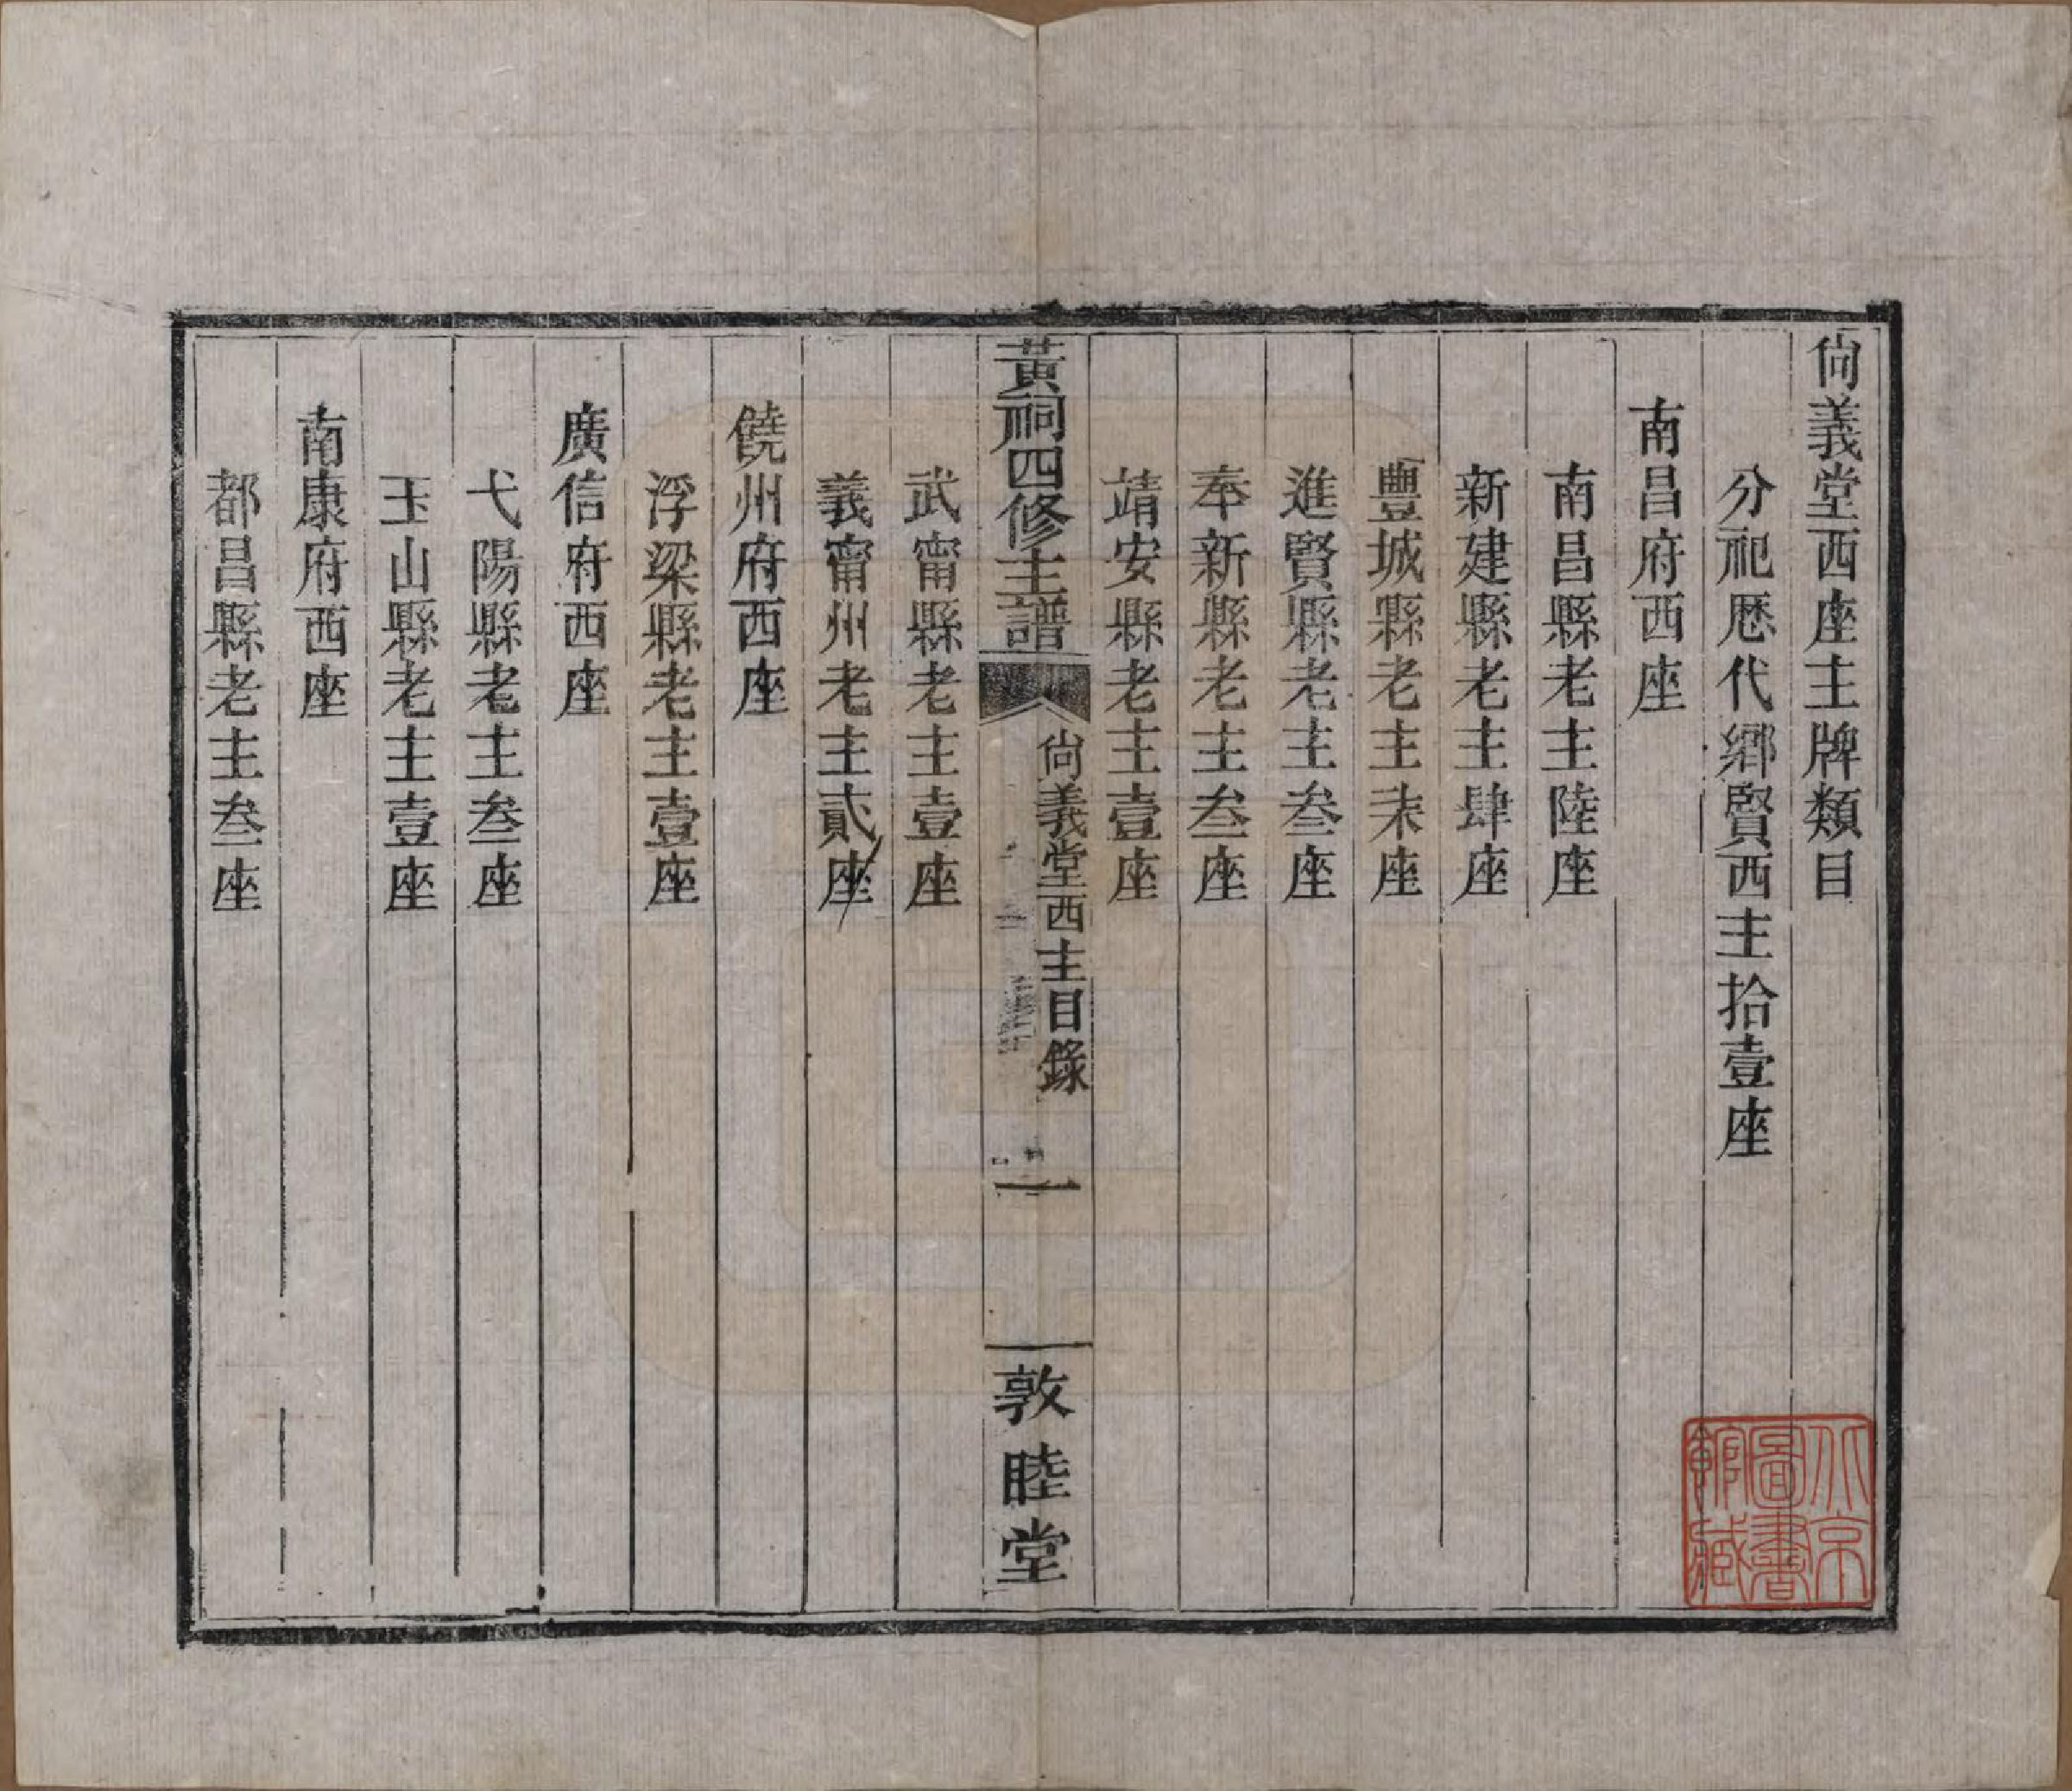 尙義堂西座主牌類目
分祀歷代鄉賢西主拾壹座
南昌府西座
南昌縣老主陸座
新建縣老主肆座
豐城縣老主柒座
進賢縣老主叄座
奉新縣老主叄座
靖安縣老主壹座
黃祠四修主譜
尙義堂西主目錄
一
敦睦堂
武甯縣老主壹座
義甯州老主貳座
饒州府西座
浮梁縣老主壹座
廣信府西座
弋陽縣老主叄座
玉山縣老主壹座
南康府西座
都昌縣老主叄座
北京
圖書
館藏